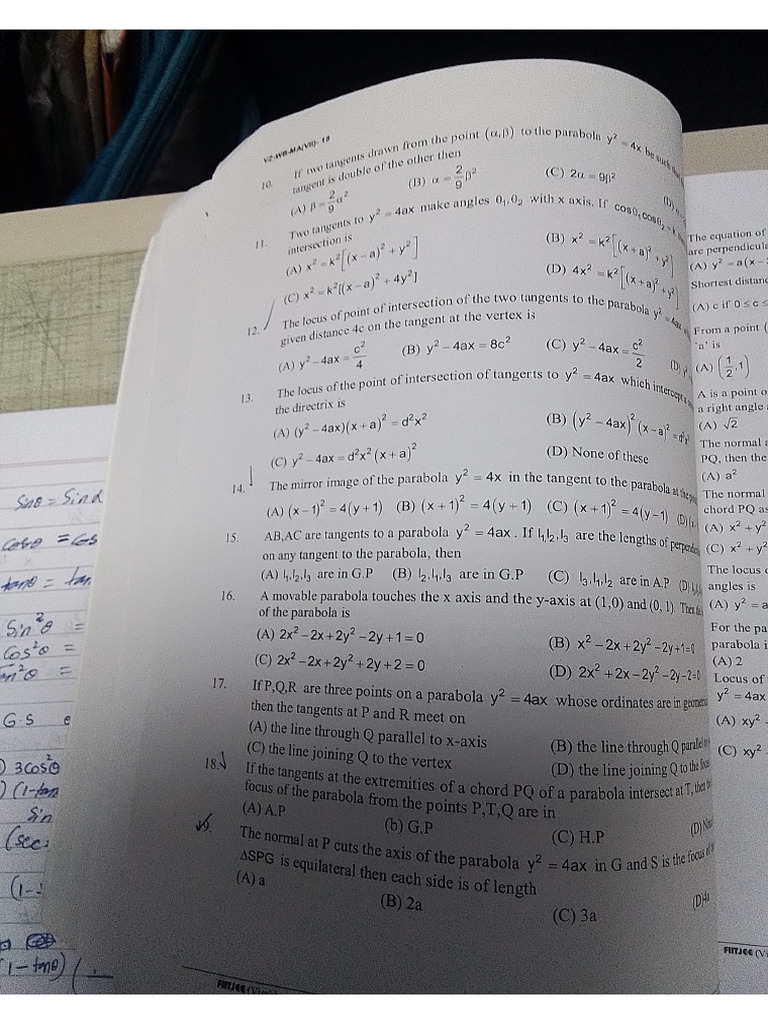 VZ-WB-MA(VII)- 18
10. If two tangents drawn from the point (α,β) to the parabola y² = 4x be such that
tangent is double of the other then
(A) β = 2/9 α² (B) α = 2/9 β² (C) 2α = 9β² (D)
11. Two tangents to y² = 4ax make angles θ₁,θ₂ with x axis. If cosθ₁cosθ₂ = k
intersection is
(A) x² = k²[(x − a)² + y²] (B) x² = k²[(x + a)² + y²]
(C) x² = k²[(x − a)² + 4y²] (D) 4x² = k²[(x + a)² + y²]
12. The locus of point of intersection of the two tangents to the parabola y² = 4ax
given distance 4c on the tangent at the vertex is
(A) y² − 4ax = c²/4 (B) y² − 4ax = 8c² (C) y² − 4ax = c²/2 (D)
13. The locus of the point of intersection of tangents to y² = 4ax which intercept a
the directrix is
(A) (y² − 4ax)(x + a)² = d²x² (B) (y² − 4ax)² (x − a)² = d²y²
(C) y² − 4ax = d²x² (x + a)² (D) None of these
14. The mirror image of the parabola y² = 4x in the tangent to the parabola at the
(A) (x − 1)² = 4(y + 1) (B) (x + 1)² = 4(y + 1) (C) (x + 1)² = 4(y − 1) (D)
15. AB,AC are tangents to a parabola y² = 4ax. If l₁,l₂,l₃ are the lengths of
on any tangent to the parabola, then
(A) l₁,l₂,l₃ are in G.P (B) l₂,l₁,l₃ are in G.P (C) l₃,l₁,l₂ are in A.P (D)
16. A movable parabola touches the x axis and the y-axis at (1,0) and (0, 1). Then the
of the parabola is
(A) 2x² − 2x + 2y² − 2y + 1 = 0 (B) x² − 2x + 2y² − 2y + 1 = 0
(C) 2x² − 2x + 2y² + 2y + 2 = 0 (D) 2x² + 2x − 2y² − 2y − 2 = 0
17. If P,Q,R are three points on a parabola y² = 4ax whose ordinates are in
then the tangents at P and R meet on
(A) the line through Q parallel to x-axis (B) the line through Q
(C) the line joining Q to the vertex (D) the line joining Q to the
18. If the tangents at the extremities of a chord PQ of a parabola intersect at T, then
focus of the parabola from the points P,T,Q are in
(A) A.P (b) G.P (C) H.P (D)
19. The normal at P cuts the axis of the parabola y² = 4ax in G and S is the focus of
ΔSPG is equilateral then each side is of length
(A) a (B) 2a (C) 3a (D) 4a
FIITJEE
The equation of
are perpendicula
(A) y² = a(x −
Shortest distanc
(A) c if 0 ≤ c ≤
From a point (
'a' is
(A) (1/2, 1)
A is a point o
a right angle
(A) √2
The normal a
PQ, then the
(A) a²
The normal
chord PQ as
(A) x² + y²
(C) x² + y²
The locus o
angles is
(A) y² = a
For the pa
parabola i
(A) 2
Locus of
y² = 4ax
(A) xy²
(C) xy²
FIITJEE (Vi
Sinθ = Sinα
Cosθ = Cos
tanθ = tan
Sin²θ =
Cos²θ =
G.S
3Cos²θ
(1-tan
Sin
(sec
(1-
1-tanθ) (